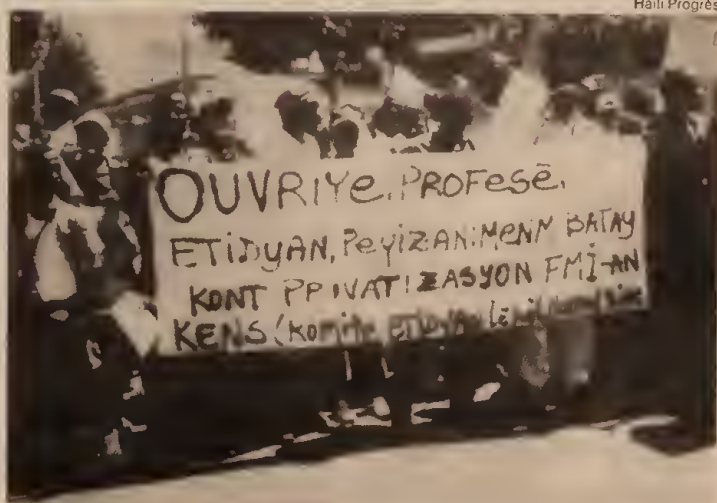 Haïti Progrès
OUVRIYE, PROFESÈ,
ETIDYAN, PEYIZAN: MENM BATAY
KONT PRIVATIZASYON FMI-AN
KENS (Komite